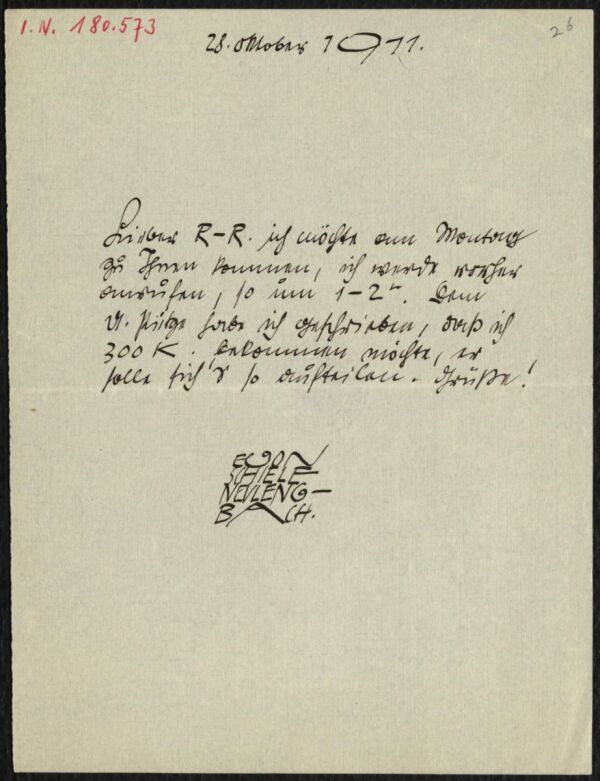 I.N. 180.573
26
28. Oktober 1911.
Lieber R-R. ich möchte am Montag
zu Ihnen kommen, ich werde vorher
anrufen, so um 1–2ʰ. Dem
habe ich geschrieben, daß ich
300 K. bekommen möchte, er
solle sich's so aufteilen. Grüße!
EGON
SCHIELE
NEULENG–
BACH.